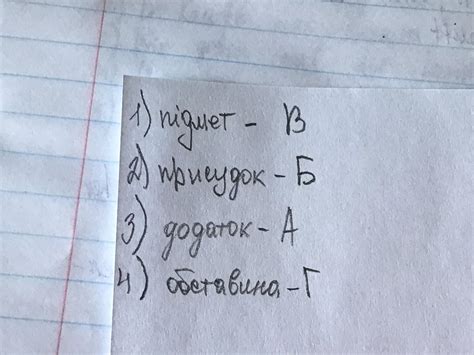 1) підмет - В
2) присудок - Б
3) додаток - А
4) обставина - Г